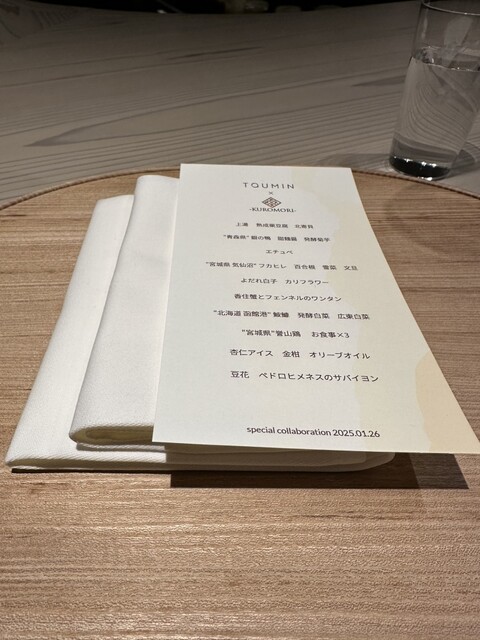 TOUMIN
×
-KUROMORI-
上湯 熟成栗豆腐 北寄貝
"青森県" 銀の鴨 甜麺醤 発酵菊芋
エチュベ
"宮城県 気仙沼" フカヒレ 百合根 雪菜 文旦
よだれ白子 カリフラワー
香住蟹とフェンネルのワンタン
"北海道 函館港" 鮟鱇 発酵白菜 広東白菜
"宮城県" 誉山鶏 お食事×3
杏仁アイス 金柑 オリーブオイル
豆花 ペドロヒメネスのサバイヨン
special collaboration 2025.01.26